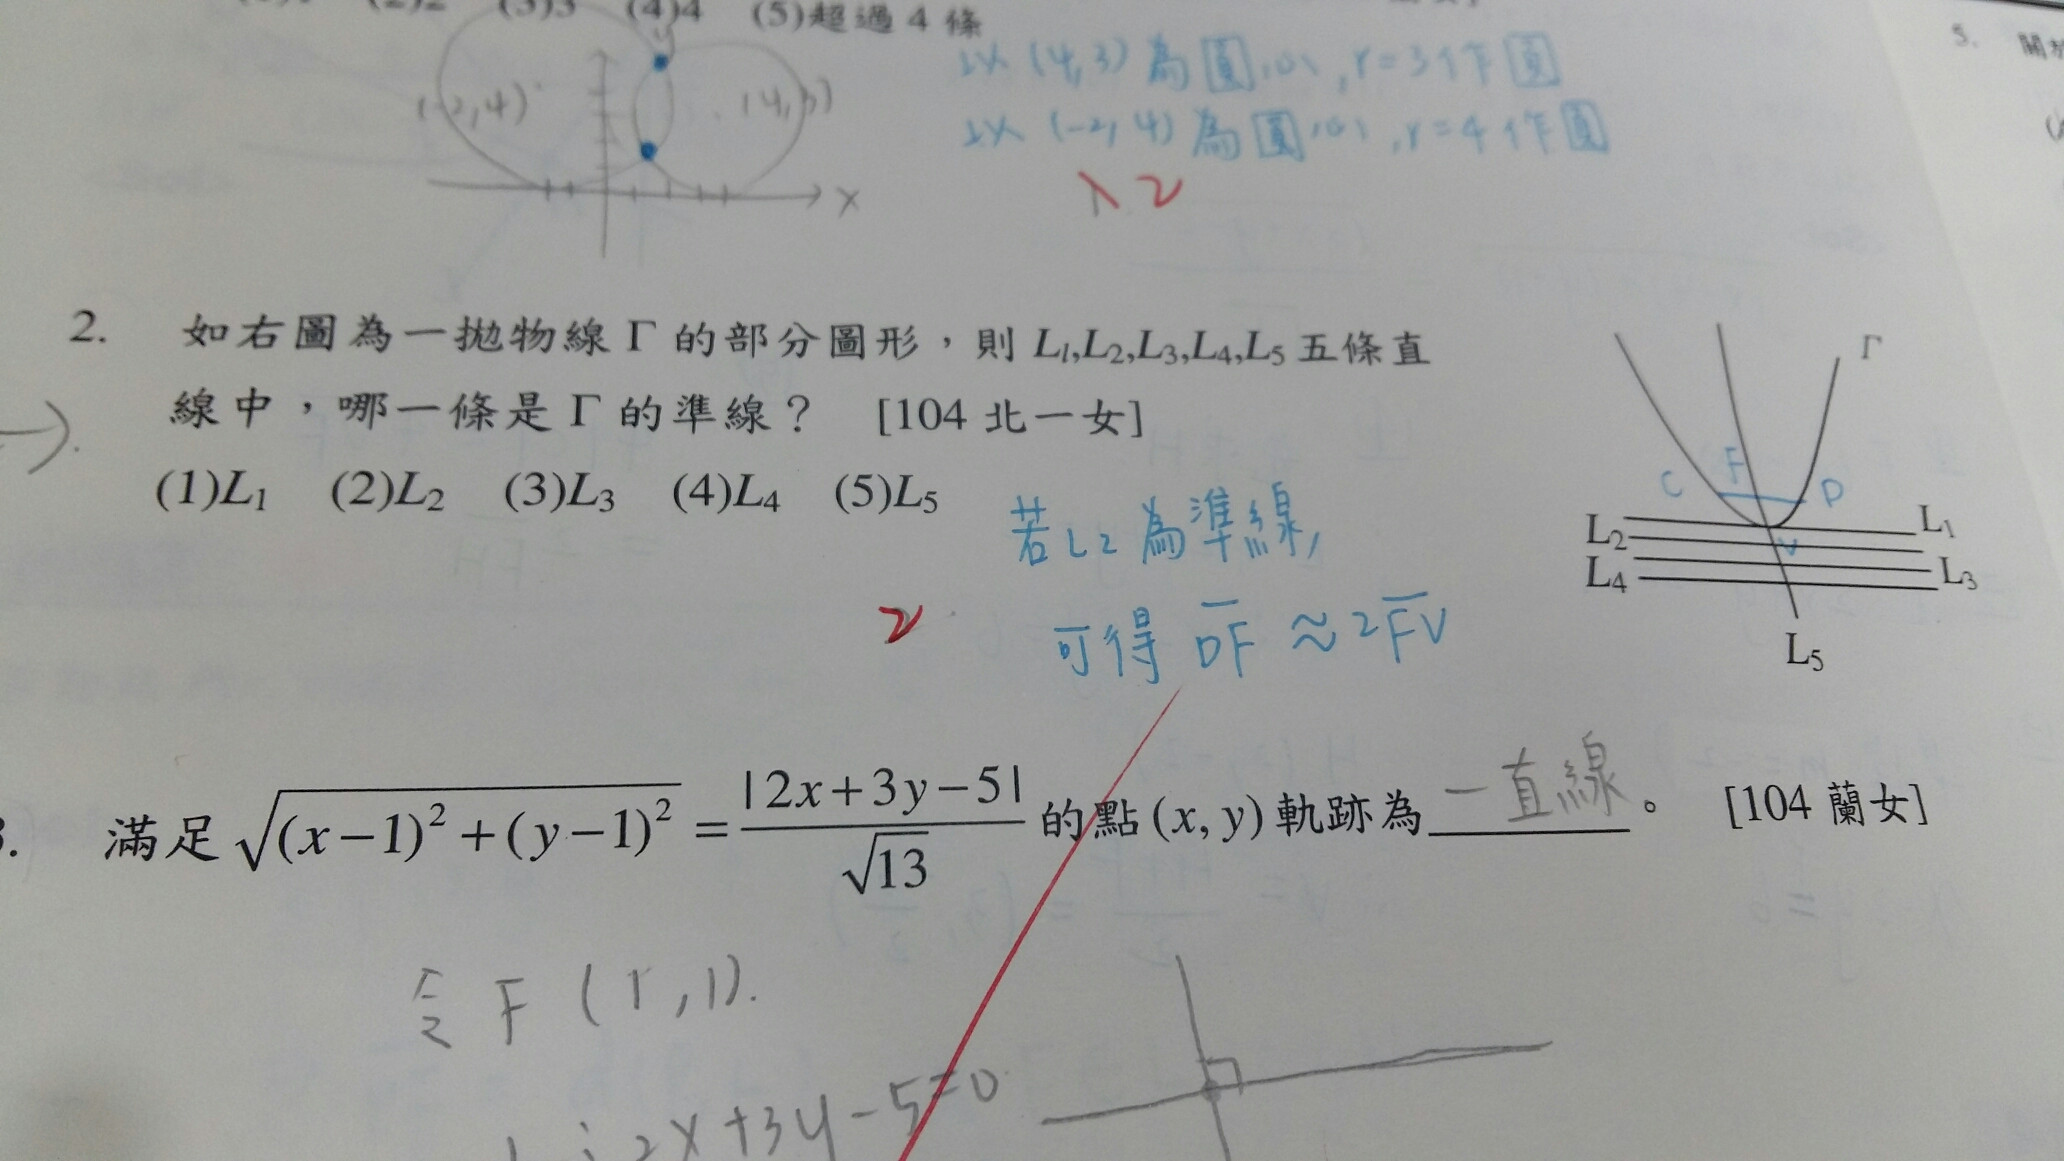 (2)2 (3)3 (4)4 (5)超過4條
(-2,4) (4,3)
x
以(4,3)為圓心,r=3作圓
以(-2,4)為圓心,r=4作圓
2
5. 關於
2. 如右圖為一拋物線Γ的部分圖形,則L1,L2,L3,L4,L5五條直
線中,哪一條是Γ的準線? [104 北一女]
(1)L1 (2)L2 (3)L3 (4)L4 (5)L5
Γ
F
C D
L2 L1
V
L4 L3
L5
若L2為準線,
可得 DF ≈ 2FV
2
3. 滿足 √((x−1)²+(y−1)²) = |2x+3y−5| / √13 的點(x, y)軌跡為 一直線 。 [104 蘭女]
令 F (1,1).
L: 2x+3y-5=0